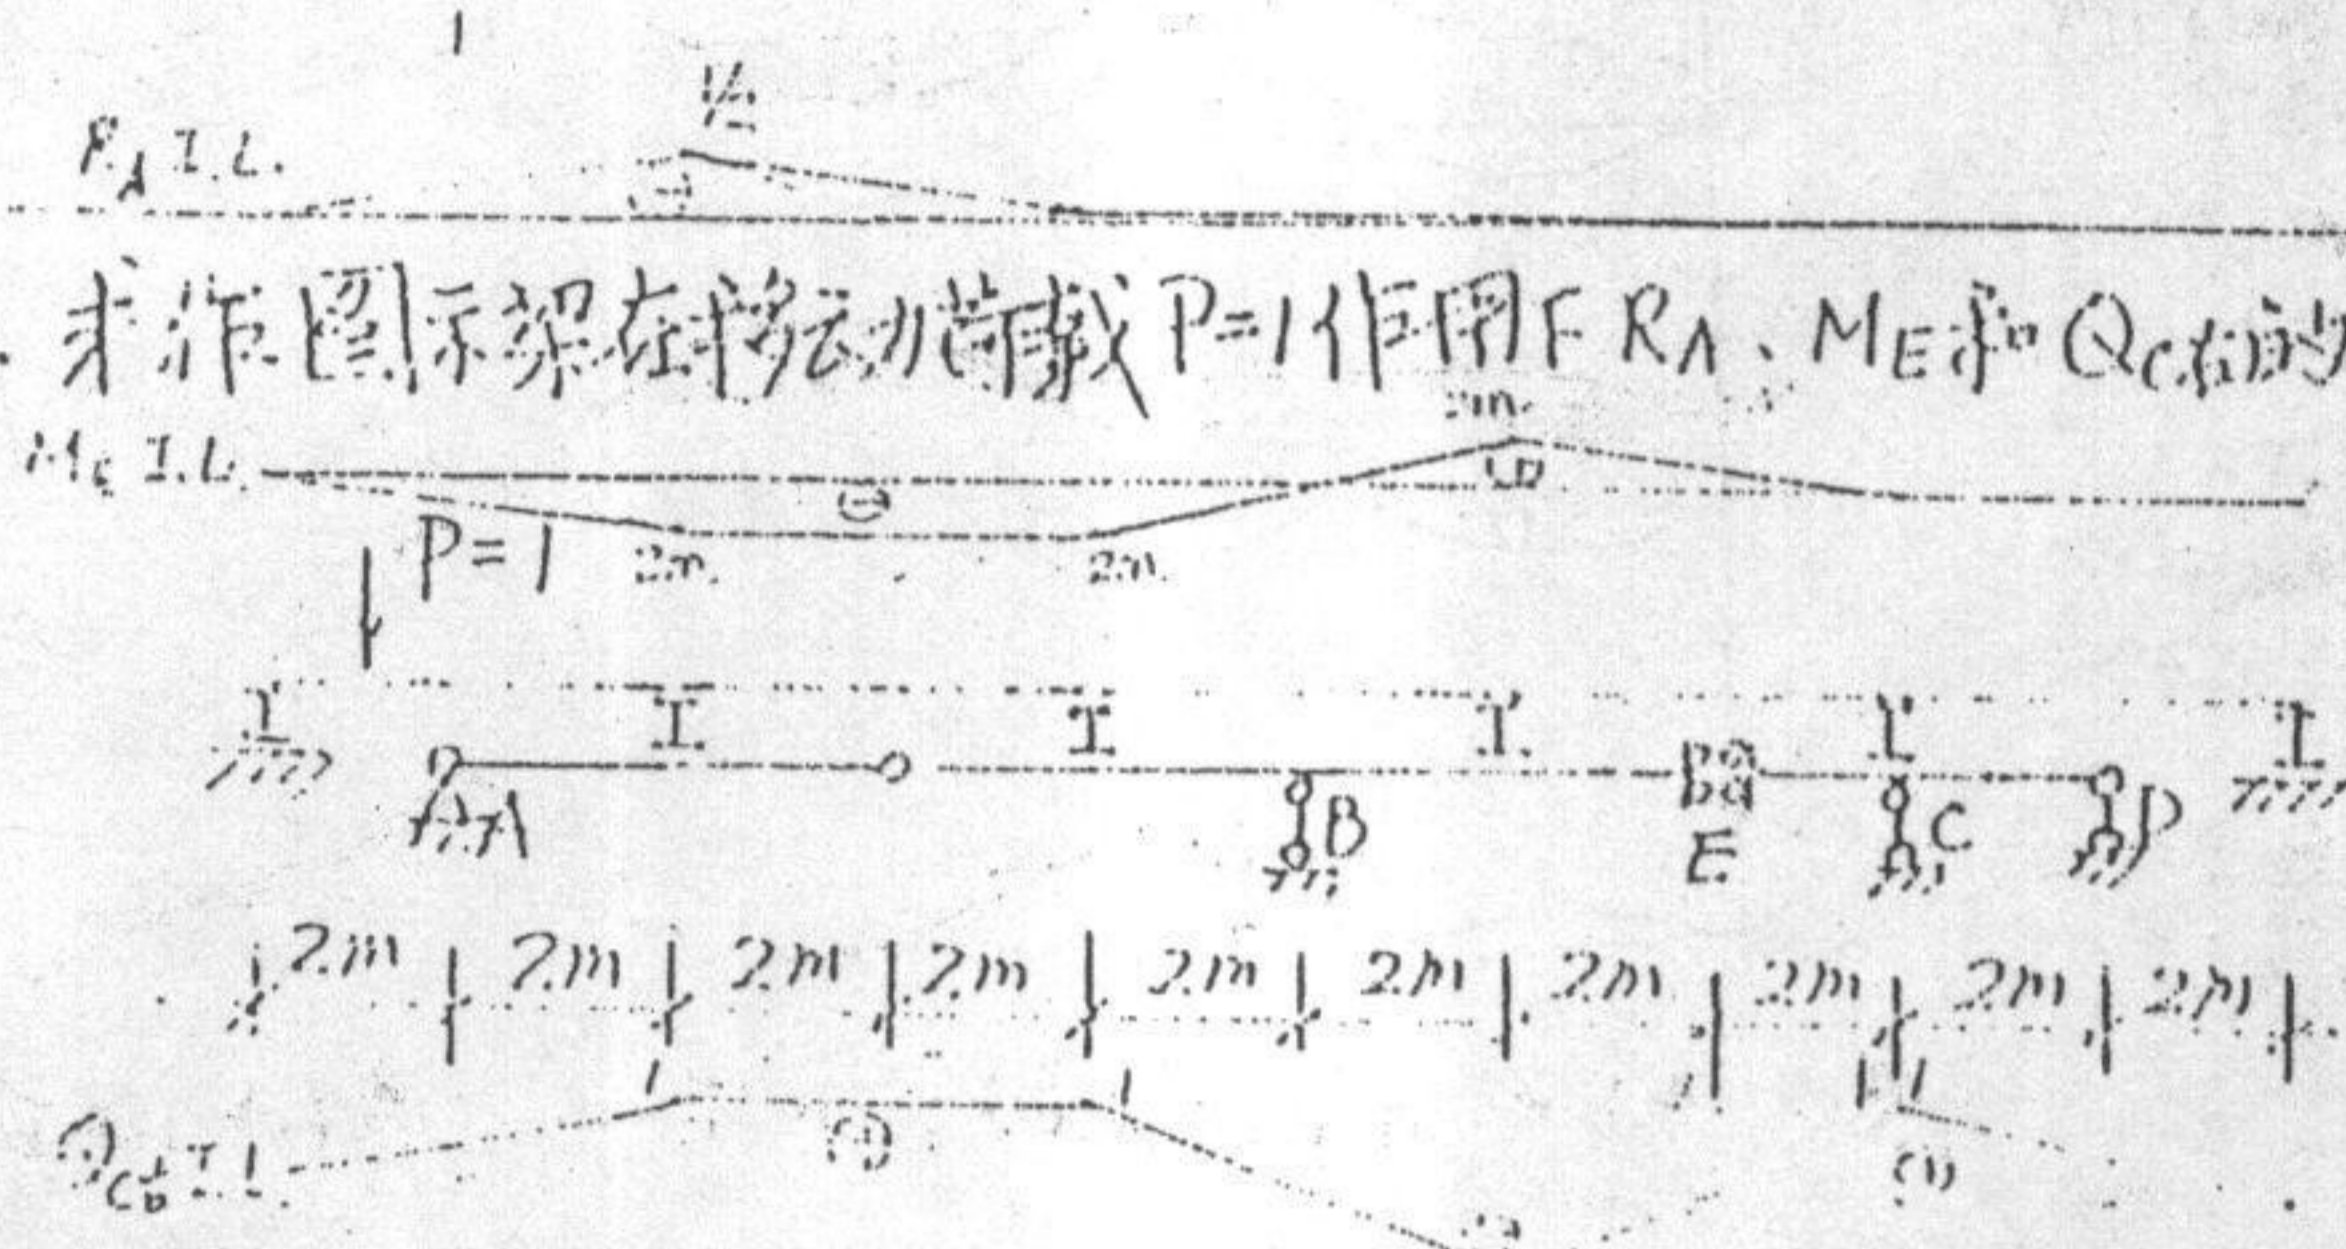 1
1/2
RA I.L.
求作图示梁在移动荷载P=1作用下RA、ME和QC右的
2m
ME I.L.
P=1 2m 2m
A B E C D
2m 2m 2m 2m 2m 2m 2m 2m 2m 2m
1 1 1 1
QC右 I.L.